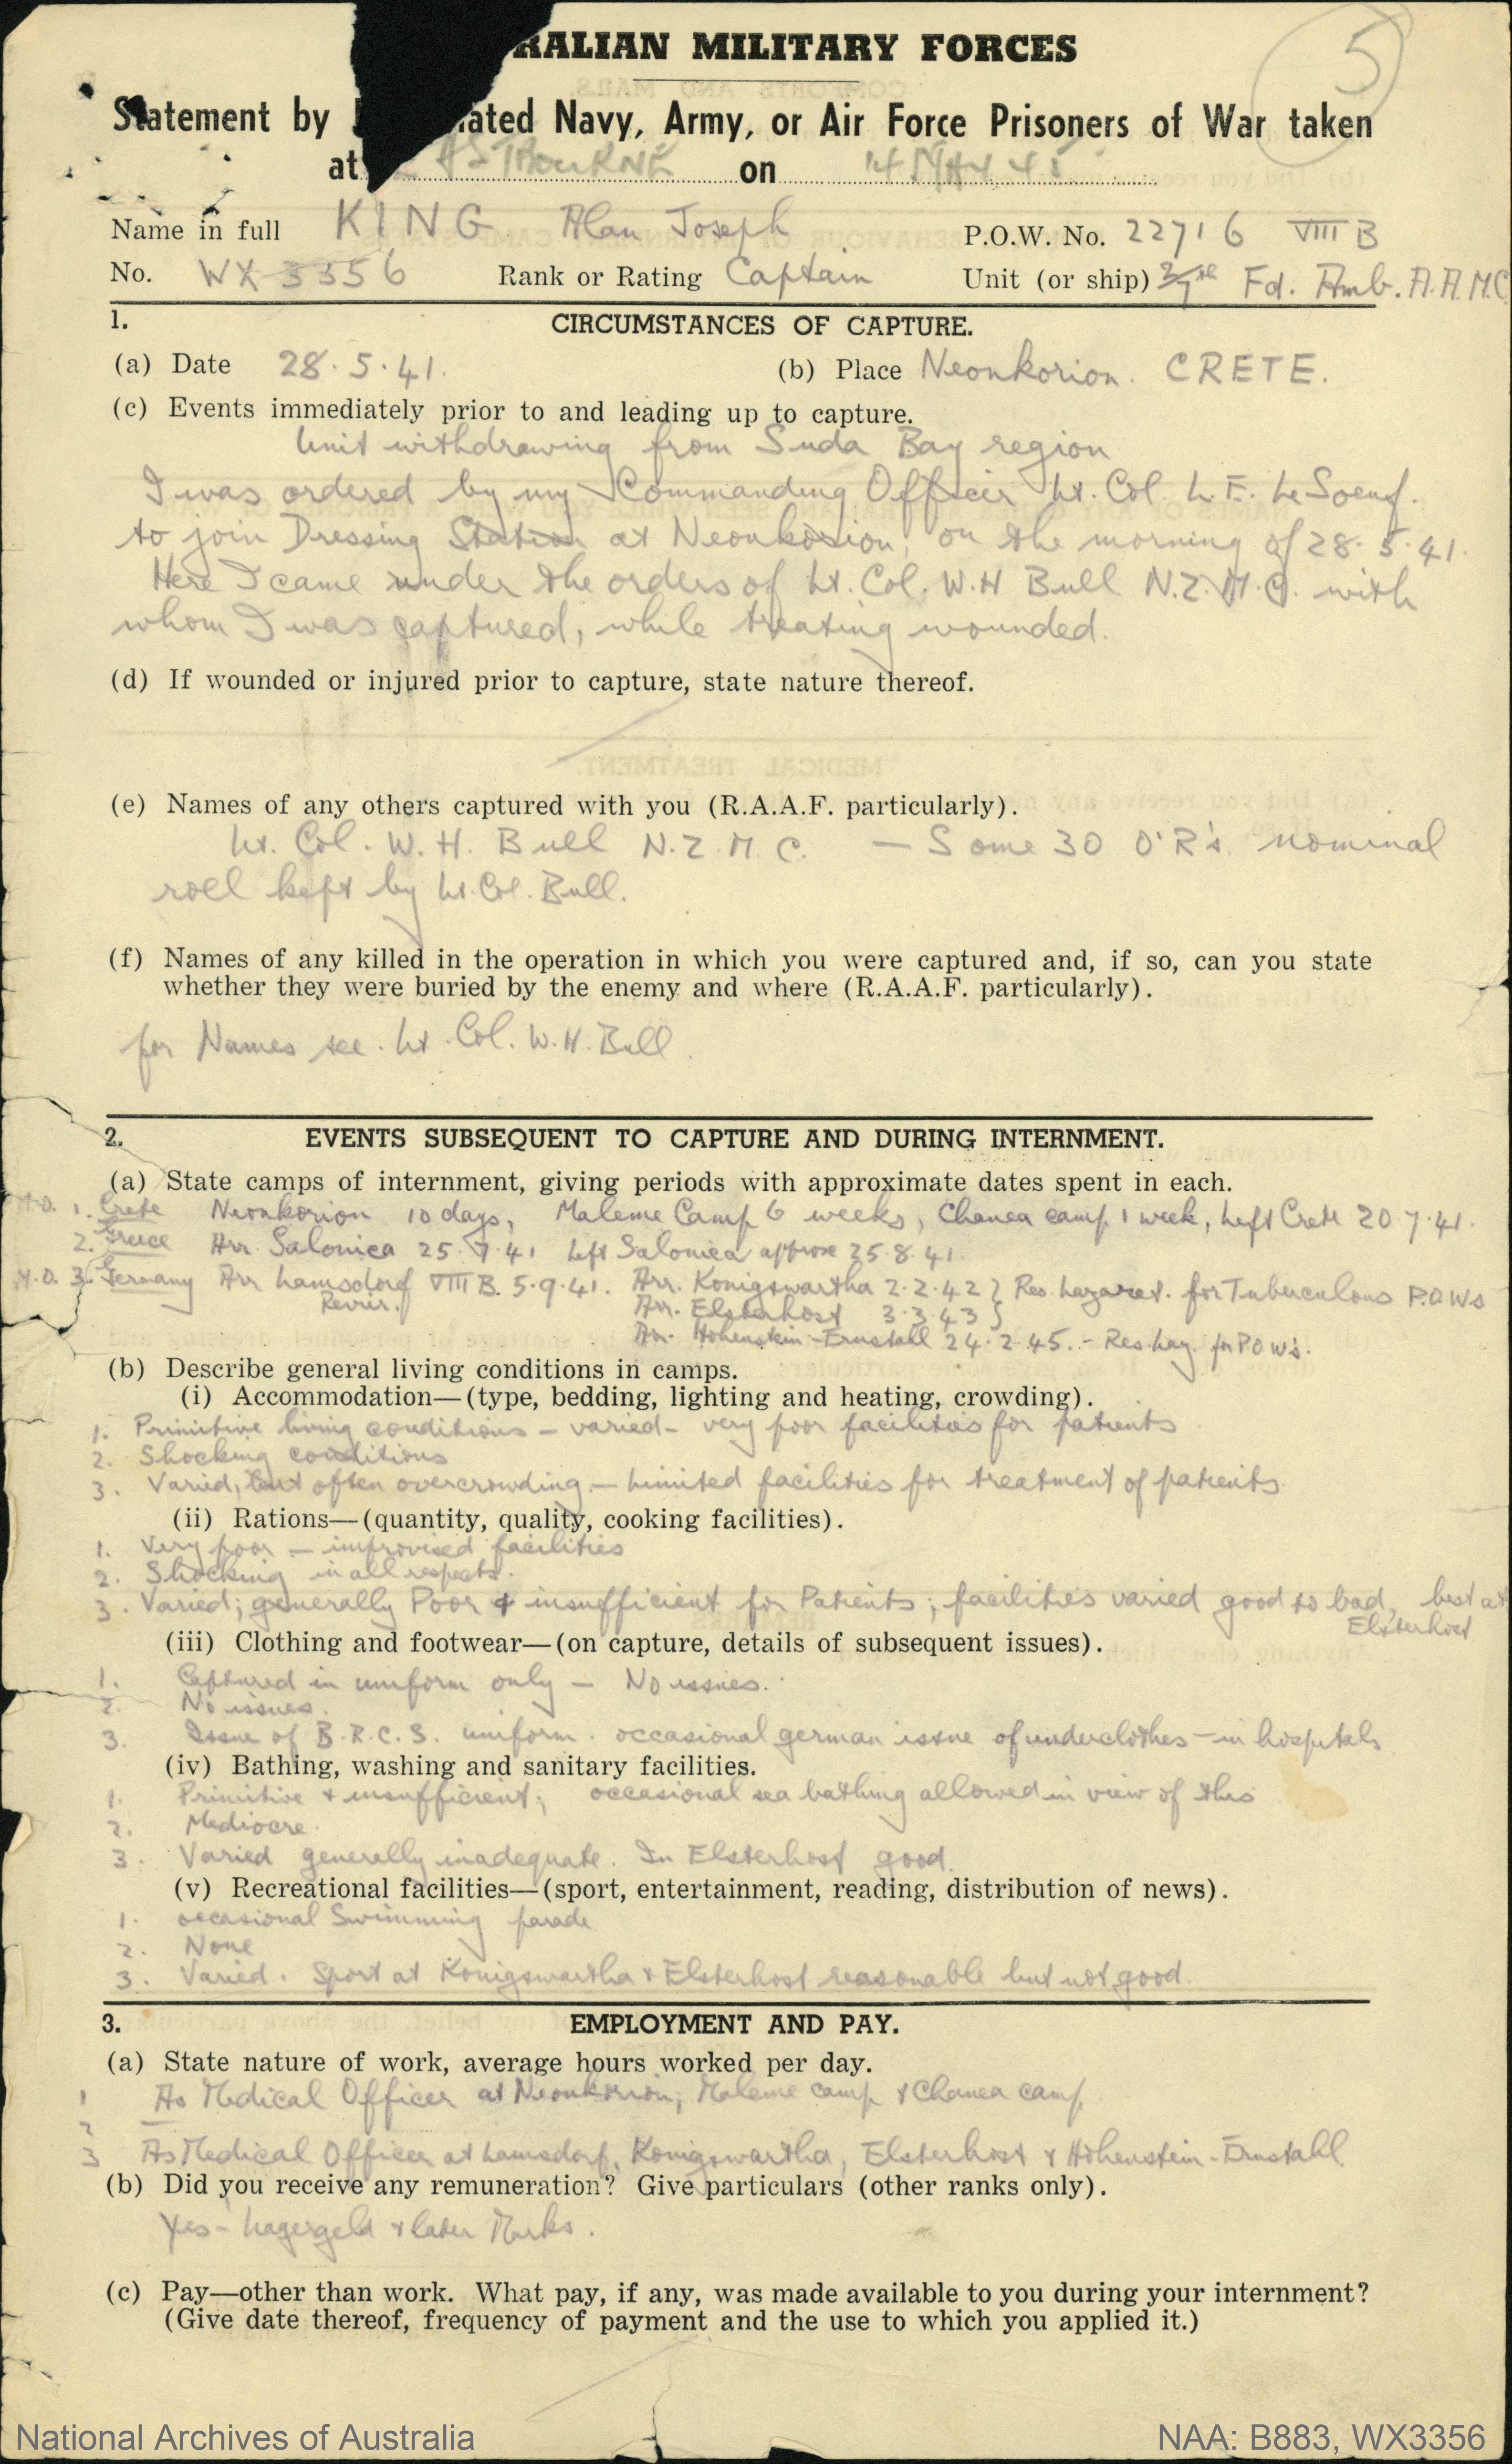 RALIAN MILITARY FORCES
5
Statement by ated Navy, Army, or Air Force Prisoners of War taken
at EASTBOURNE on 14 MAY 45
Name in full KING Alan Joseph P.O.W. No. 22716 VIII B
No. WX 3356 Rank or Rating Captain Unit (or ship) Fd. Amb. A.A.M.C
1. CIRCUMSTANCES OF CAPTURE.
(a) Date 28.5.41. (b) Place Neonkorion. CRETE.
(c) Events immediately prior to and leading up to capture.
Unit withdrawing from Suda Bay region
I was ordered by my Commanding Officer Lt. Col. L.E. LeSoeuf.
to join Dressing Station at Neonkorion, on the morning of 28.5.41.
Here I came under the orders of Lt. Col. W.H Bull N.Z.M.C. with
whom I was captured, while treating wounded.
(d) If wounded or injured prior to capture, state nature thereof.
(e) Names of any others captured with you (R.A.A.F. particularly).
Lt. Col. W. H. Bull N.Z.M.C. — Some 30 O'R's. nominal
roll kept by Lt. Col. Bull.
(f) Names of any killed in the operation in which you were captured and, if so, can you state
whether they were buried by the enemy and where (R.A.A.F. particularly).
for Names see. Lt. Col. W.H. Bull.
2. EVENTS SUBSEQUENT TO CAPTURE AND DURING INTERNMENT.
(a) State camps of internment, giving periods with approximate dates spent in each.
M.O. 1. Crete Neonkorion 10 days, Maleme Camp 6 weeks, Chanea camp 1 week, Left Crete 20.7.41.
2. Greece Arr. Salonica 25.7.41 Left Salonica approx 25.8.41.
M.O. 3. Germany Arr Lamsdorf VIII B. 5.9.41. Arr. Konigswartha 2.2.42 } Res. Lazaret. for Tuberculous P.O.Ws
Revier. Arr. Elsterhost 3.3.43 }
Arr. Hohenstein-Ernstall 24.2.45. - Res. Laz. for P.O.W's.
(b) Describe general living conditions in camps.
(i) Accommodation—(type, bedding, lighting and heating, crowding).
1. Primitive living conditions - varied - very poor facilities for patients
2. Shocking conditions
3. Varied, but often overcrowding - Limited facilities for treatment of patients.
(ii) Rations—(quantity, quality, cooking facilities).
1. Very poor - improvised facilities
2. Shocking in all respects.
3. Varied; generally Poor & insufficient for Patients; facilities varied good to bad, best at
Elsterhost
(iii) Clothing and footwear—(on capture, details of subsequent issues).
1. Captured in uniform only - No issues.
2. No issues.
3. Issue of B.R.C.S. uniform. occasional german issue of underclothes - in hospitals
(iv) Bathing, washing and sanitary facilities.
1. Primitive & insufficient; occasional sea bathing allowed in view of this
2. Mediocre.
3. Varied generally inadequate. In Elsterhost good.
(v) Recreational facilities—(sport, entertainment, reading, distribution of news).
1. occasional Swimming parade
2. None
3. Varied. Sport at Konigswartha & Elsterhost reasonable but not good.
3. EMPLOYMENT AND PAY.
(a) State nature of work, average hours worked per day.
1 As Medical Officer at Neonkorion, Maleme camp & Chanea camp
2 —
3 As Medical Officer at Lamsdorf, Konigswartha, Elsterhost & Hohenstein-Ernstall
(b) Did you receive any remuneration? Give particulars (other ranks only).
Yes - Lagergeld & later Marks.
(c) Pay—other than work. What pay, if any, was made available to you during your internment?
(Give date thereof, frequency of payment and the use to which you applied it.)
National Archives of Australia NAA: B883, WX3356